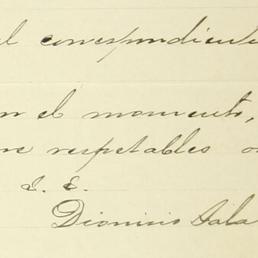 el correspondiente
en el momento,
respetables
I. E.
Dionisio Sala